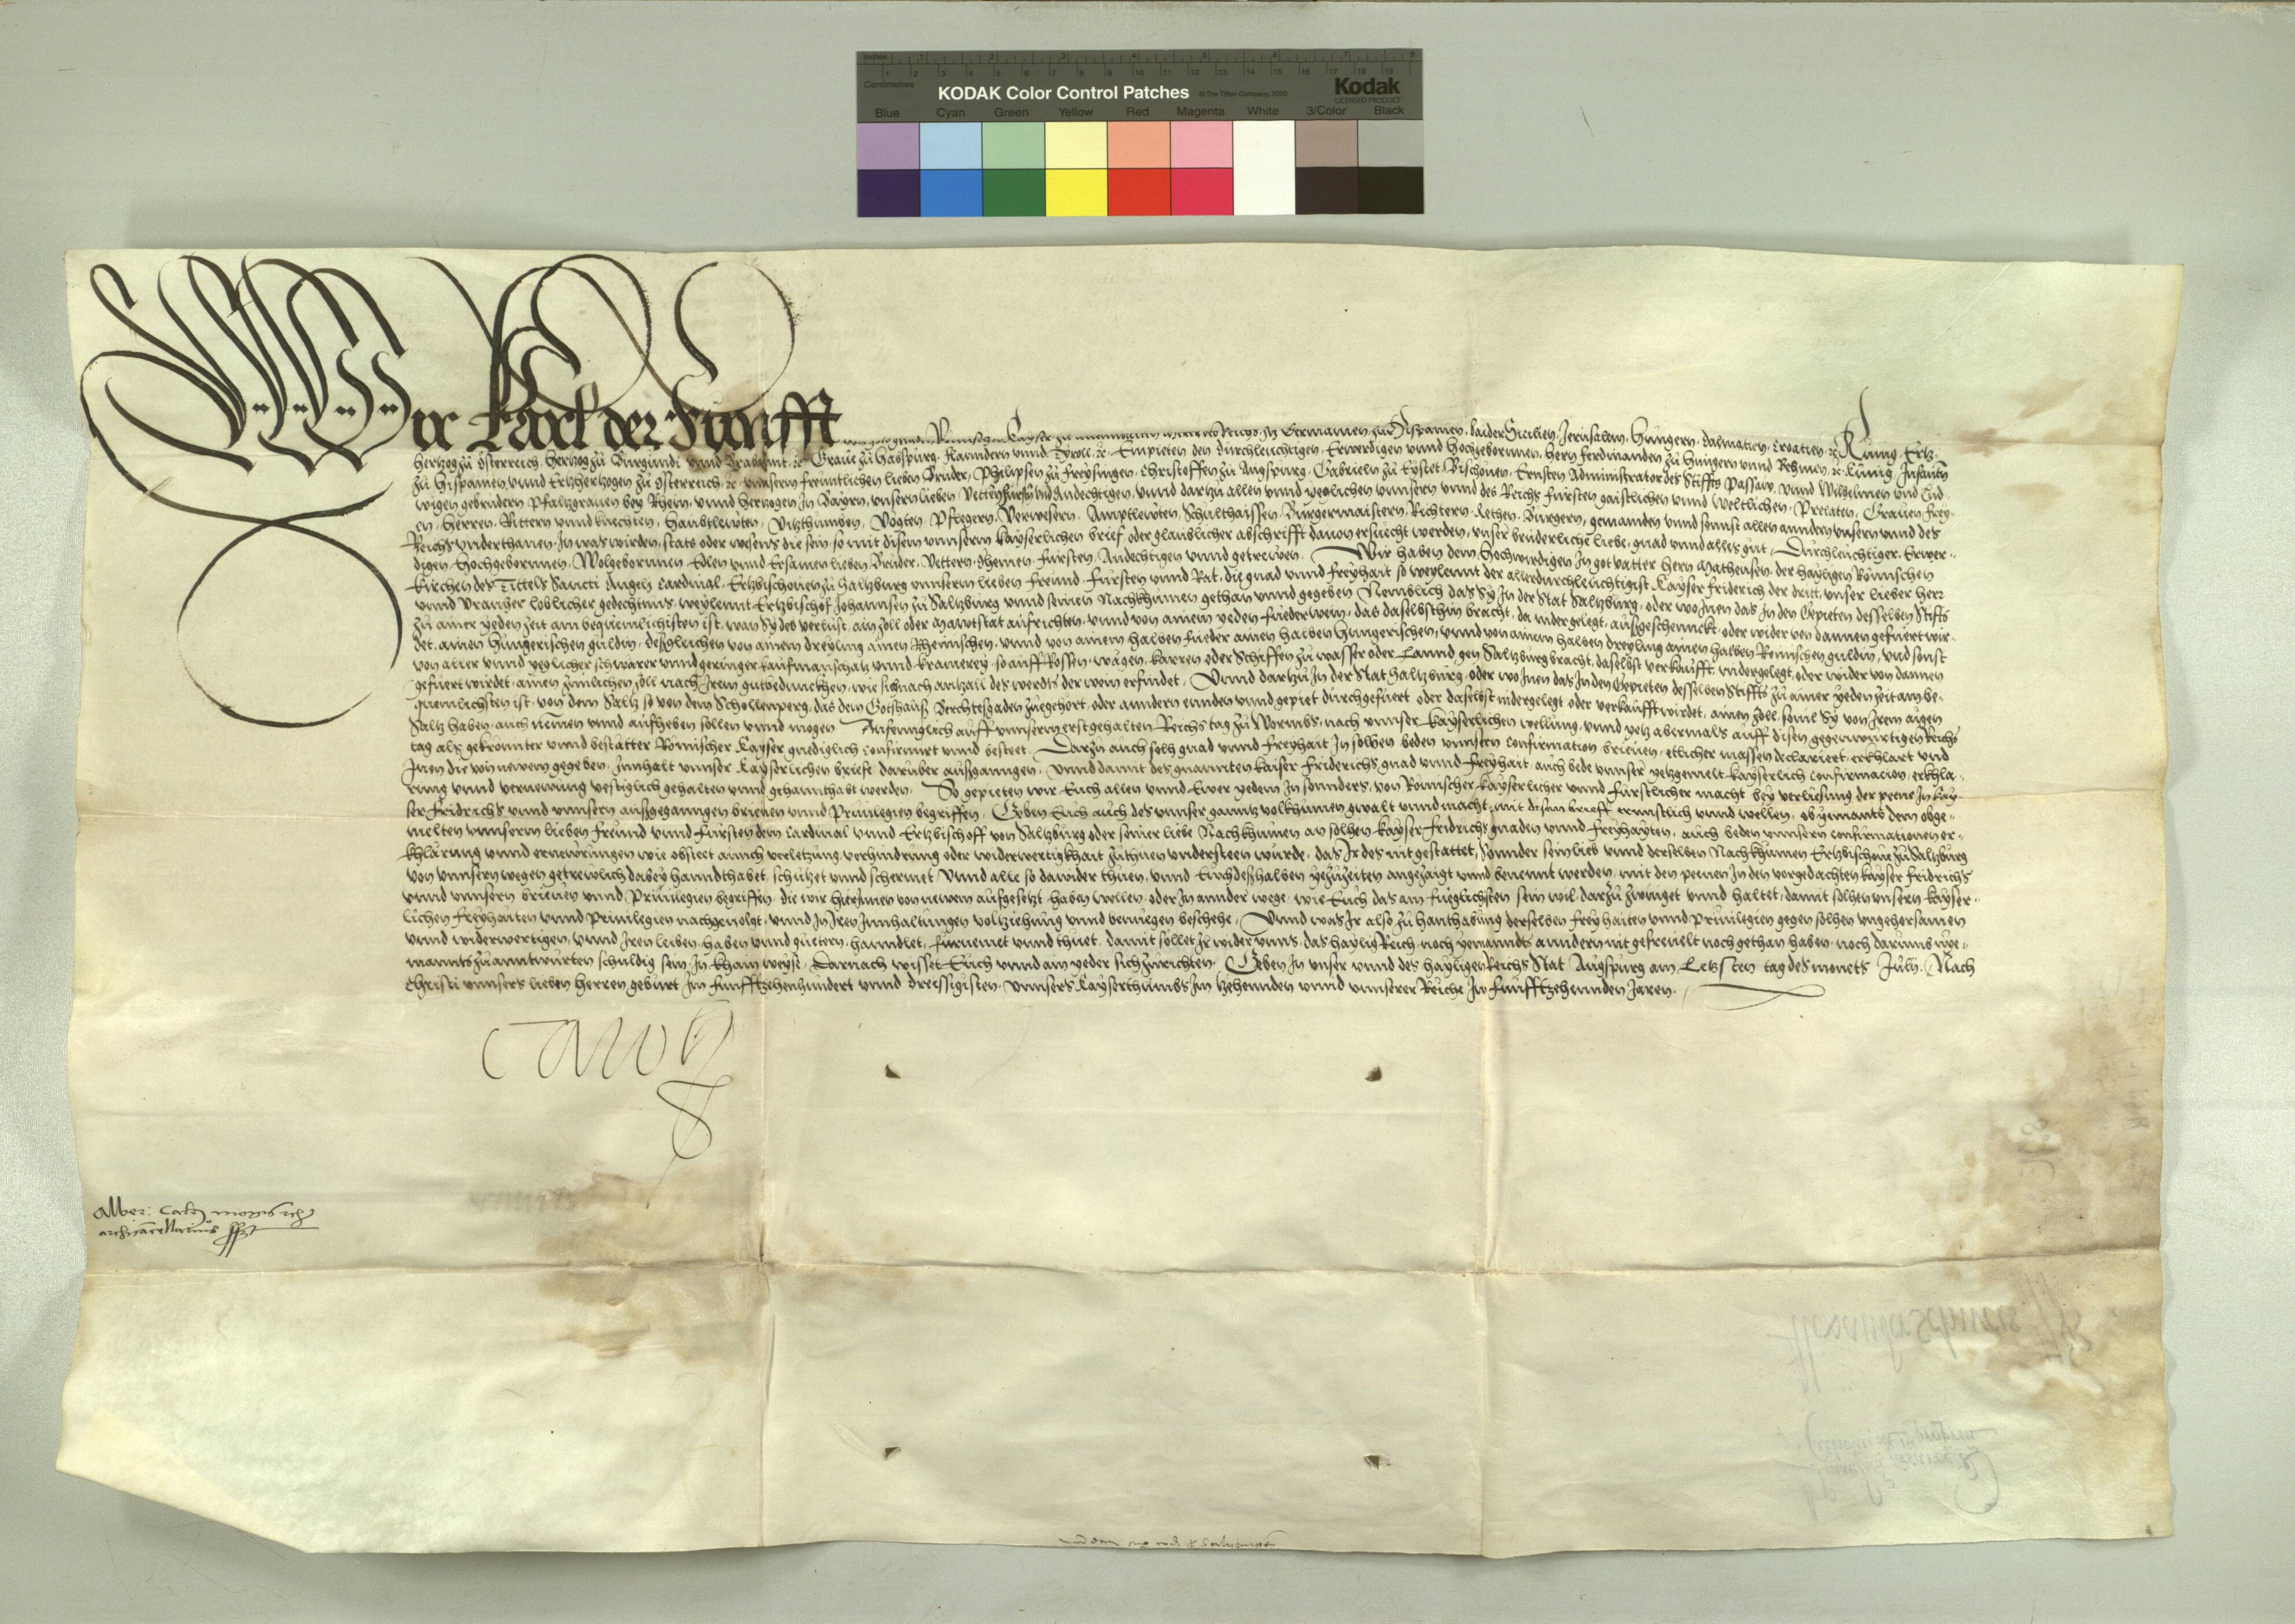 Inches 1 2 3 4 5 6 7 8
Centimetres 1 2 3 4 5 6 7 8 9 10 11 12 13 14 15 16 17 18 19
KODAK Color Control Patches © The Tiffen Company, 2000 Kodak
LICENSED PRODUCT
Blue Cyan Green Yellow Red Magenta White 3/Color Black
Wir Karl der Funfft von gots gnaden Romischer Kayser zu allenntzeiten merer des Reichs, In Germanien, zu Hispanien, baider Sicilien, Jerusalem, Hungern, Dalmatien, Croatien ⁊c Kunig, Ertz-
hertzog zu Osterreich, Hertzog zu Burgundi vnnd Brabannt ⁊c Graue zu Habspurg, Flanndern vnnd Tyroll ⁊c Empieten den durchleuchtigen, Erwerdigen vnnd Hochgebornnen, Hern Ferdinanden zu Hungern vnnd Behmen ⁊c Künig, Infantn
zu Hispanien vnnd Ertzhertzogen zu Osterreich ⁊c vnnserm freuntlichen lieben Bruder, Philipsen zu Freysingen, Christoffen zu Augspurg, Gabrieln zu Eystet Bischouen, Ernsten Administrator des Stiffts Passaw, vnnd Wilhelmen vnd Lud-
wigen gebrudern Pfaltzgrauen bey Rhein, vnnd Hertzogen In Bayrn, vnsern lieben Vettern fursten vnd Andechtigen, vnnd dartzu allen vnnd yeglichen vnnsern vnnd des Reichs Fursten gaistlichen vnnd weltlichen, Prelaten, Grauen, Frey-
en, Herren, Rittern vnnd knechten, Haubtlewten, Vitzthumben, Vögten, Pflegern, Verwesern, Amptlewten, Schulthaissen, Burgermaistern, Richtern, Rethen, Burgern, gemainden vnnd sonnst allen anndern vnsern vnnd des
Reichs vnderthanen, In was wirden, stats oder wesens die sein so mit disem vnnserm kayserlichen brief, oder glaublicher abschrifft dauon ersuecht werden, vnser bruderliche liebe, gnad vnnd alles gut, Durchleichtiger, Erwer-
digen, Hochgebornnen, Wolgebornnen Edlen vnnd Ersamen lieben Bruder, Vettern, Oheimen, Fursten, Andechtigen vnnd getrewen. Wir haben dem Hochwirdigen In got vatter Hern Matheusen, der hayligen Romischen
Kirchen des Tittels Sancti Angeli Cardinal, Ertzbischouen zu Saltzburg vnnserm lieben Freund, Fursten vnnd Rat, die gnad vnnd Freyhait so weylennt der allerdurchleuchtigist Kayser Friderich der dritt, vnser lieber Herr
vnnd Vranher loblicher gedechtnus, weylennt Ertzbischof Johannsen zu Saltzburg vnnd seinen Nachkhumen gethan vnnd gegeben, Nemblich das Sy In der Stat Saltzburg, oder wo Inen das In den Gepieten desselben Stiffts
zu ainer yeden zeit am bequemlichisten ist, wan Sy des verlust, ain zoll oder Mawtstat aufrichten, vnnd von ainem yeden Fueder wein, das daselbsthin bracht, da nidergelegt, aussgeschennckt, oder wider von dannen gefuert wir-
det, ainen Hungerischen guldin, dessglichen von ainem dreyling ainen Rheinischen, vnnd von ainem halben fueder ainen halben Hungerischen, vnnd von ainem halben dreyling ainen halben Reinischen guldin, vnd sonst
von aller vnnd yeglicher schwarer vnnd geringer kaufmanschatz vnnd kramerey, so auff Rossen, wägen, karren oder Schiffen zu wasser oder Lannd gen Saltzburg bracht, daselbst verkaufft, nidergelegt, oder wider von dannen
gefuert wirdet, ainen zimlichen zoll nach Irem gutbedunckhen, wie sich nach antzall des werdts der wein erfindet, Vnnd dartzu In der Stat Saltzburg, oder wo Inen das In den Gepieten desselben Stiffts zu ainer yeden zeit am be-
quemlichsten ist, von dem Saltz so von dem Schellenperg, das dem Gotshauss Berchtessgaden zuegehort, oder anndern ennden vnnd gepiet durchgefuert oder daselbst nidergelegt oder verkaufft wirdet, ainen zoll, souil Sy von Irem aigen
Saltz haben, auch nemen vnnd aufheben sollen vnnd mogen. Anfennglich auff vnnserm erst gehalten Reichstag zu Wormbs, nach vnnser kayserlichen wellung, vnnd yetz abermals auff disen gegenwurtigen Reichs-
tag als gekronnter vnnd bestatter Romischer Kayser gnediglich confirmirt vnnd besteet, Dartzu auch solh gnad vnnd Freyhait In solhen beden vnnsern confirmation brieuen, etlicher massen declariert, erkhlärt vnd
Inen die von newem gegeben, Innhalt vnnser Kayserlichen briefe daruber aussganngen, vnnd damit des gnannten kaiser Friderichs gnad vnnd Freyhait, auch bede vnnser yetzgemelt kayserlich confirmacion, erkhla-
rung vnnd vernewung vestiglich gehalten vnnd gehannthabt werden. So gepieten wir Euch allen vnnd Ewer yedem In sonnders, von Romischer kayserlicher vnnd fürstlicher macht, bey verliesung der peene In kay-
ser Fridrichs vnnd vnnsern aussgeganngen brieuen vnnd Priuilegien begriffen, Geben Euch auch des vnnser ganntz volkhumen gwalt vnnd macht, mit disem brieff ernnstlich vnnd wellen, ob yemants dem obge-
melten vnnserm lieben freund vnnd Fursten dem Cardinal vnnd Ertzbischoff von Saltzburg oder seiner liebe Nachkhumen an solhen kayser Fridrichs gnaden vnnd Freyhayten, auch beden vnnsern confirmationen er-
khlärung vnnd ernewrungen wie obsteet ainich verletzung, verhindrung oder widerwertigkhait zuthuen vndersteen wurde, das Ir des nit gestattet, sonnder sein lieb vnnd derselben Nachkhumen Ertzbischoue zu Saltzburg
von vnnsern wegen getrewlich dabey hanndthabet, schützet vnnd schermet, Vnnd alle so dawider thuen, vnnd Euch desshalben yezuzeiten angezaigt vnnd benennt werden, mit den peenen In den vorgedachten kayser Fridrichs
vnnd vnnsern brieuen vnnd Priuilegien begriffen, die wir hierInnen von newem aufgesetzt haben wellen, oder In annder wege, wie Euch das am fueglichsten sein wil, dartzu zwinget vnnd haltet, damit solhen vnsern kayser-
lichen Freyhaiten vnnd Priuilegien nachgeuolgt, vnnd In Iren Innhaltungen voltziehung vnnd benuegen beschehe, Vnnd was Ir also zu hanthabung derselben Freyhaiten vnnd Priuilegien gegen solhen vngehorsamen
vnnd widerwertigen, vnnd Iren leiben, haben vnnd guetern, hanndlet, furnemet vnnd thuet, damit sollet Ir wider vnns, das haylig Reich, noch yemanndts anndern nit gefreuelt noch gethan haben, noch darumb nye-
mannts zu anntwurten schuldig sein, In khain weyse, Darnach wisset Euch vnnd ain yeder sich zurichten, Geben In vnser vnnd des hayligen Reichs Stat Augspurg am Letzsten tag des monets Julij, Nach
Christi vnnsers lieben Herren geburt Im Funfftzehenhundert vnnd Dreissigisten, Vnnsers Kayserthumbs Im Zehennden vnnd vnnserer Reiche Im Funfftzehennden Jaren.
Carolus
Alber: Cardi mogun
archicancellarius sst